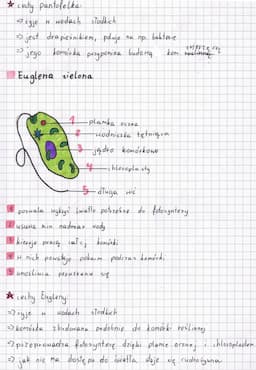 ★ cechy pantofelka:
⇒ żyje w wodach słodkich
⇒ jest drapieżnikiem, poluje na np. bakterie
⇒ jego komórka przypomina budową kom.
Euglena zielona
1 plamka oczna
2 wodniczka tętniąca
3 jądro komórkowe
4 chloroplasty
5 długa wić
1 pozwala wykryć światło potrzebne do fotosyntezy
2 usuwa m.in. nadmiar wody
3 kieruje pracą całej komórki
4 w nich powstaje pokarm podczas
5 umożliwia poruszanie się
★ cechy Eugleny:
⇒ żyje w wodach słodkich
⇒ komórka zbudowana podobnie do komórki roślinnej
⇒ przeprowadza fotosyntezę dzięki plamie ocznej i chloroplastom
⇒ jak nie ma dostępu do światła staje się cudzożywna